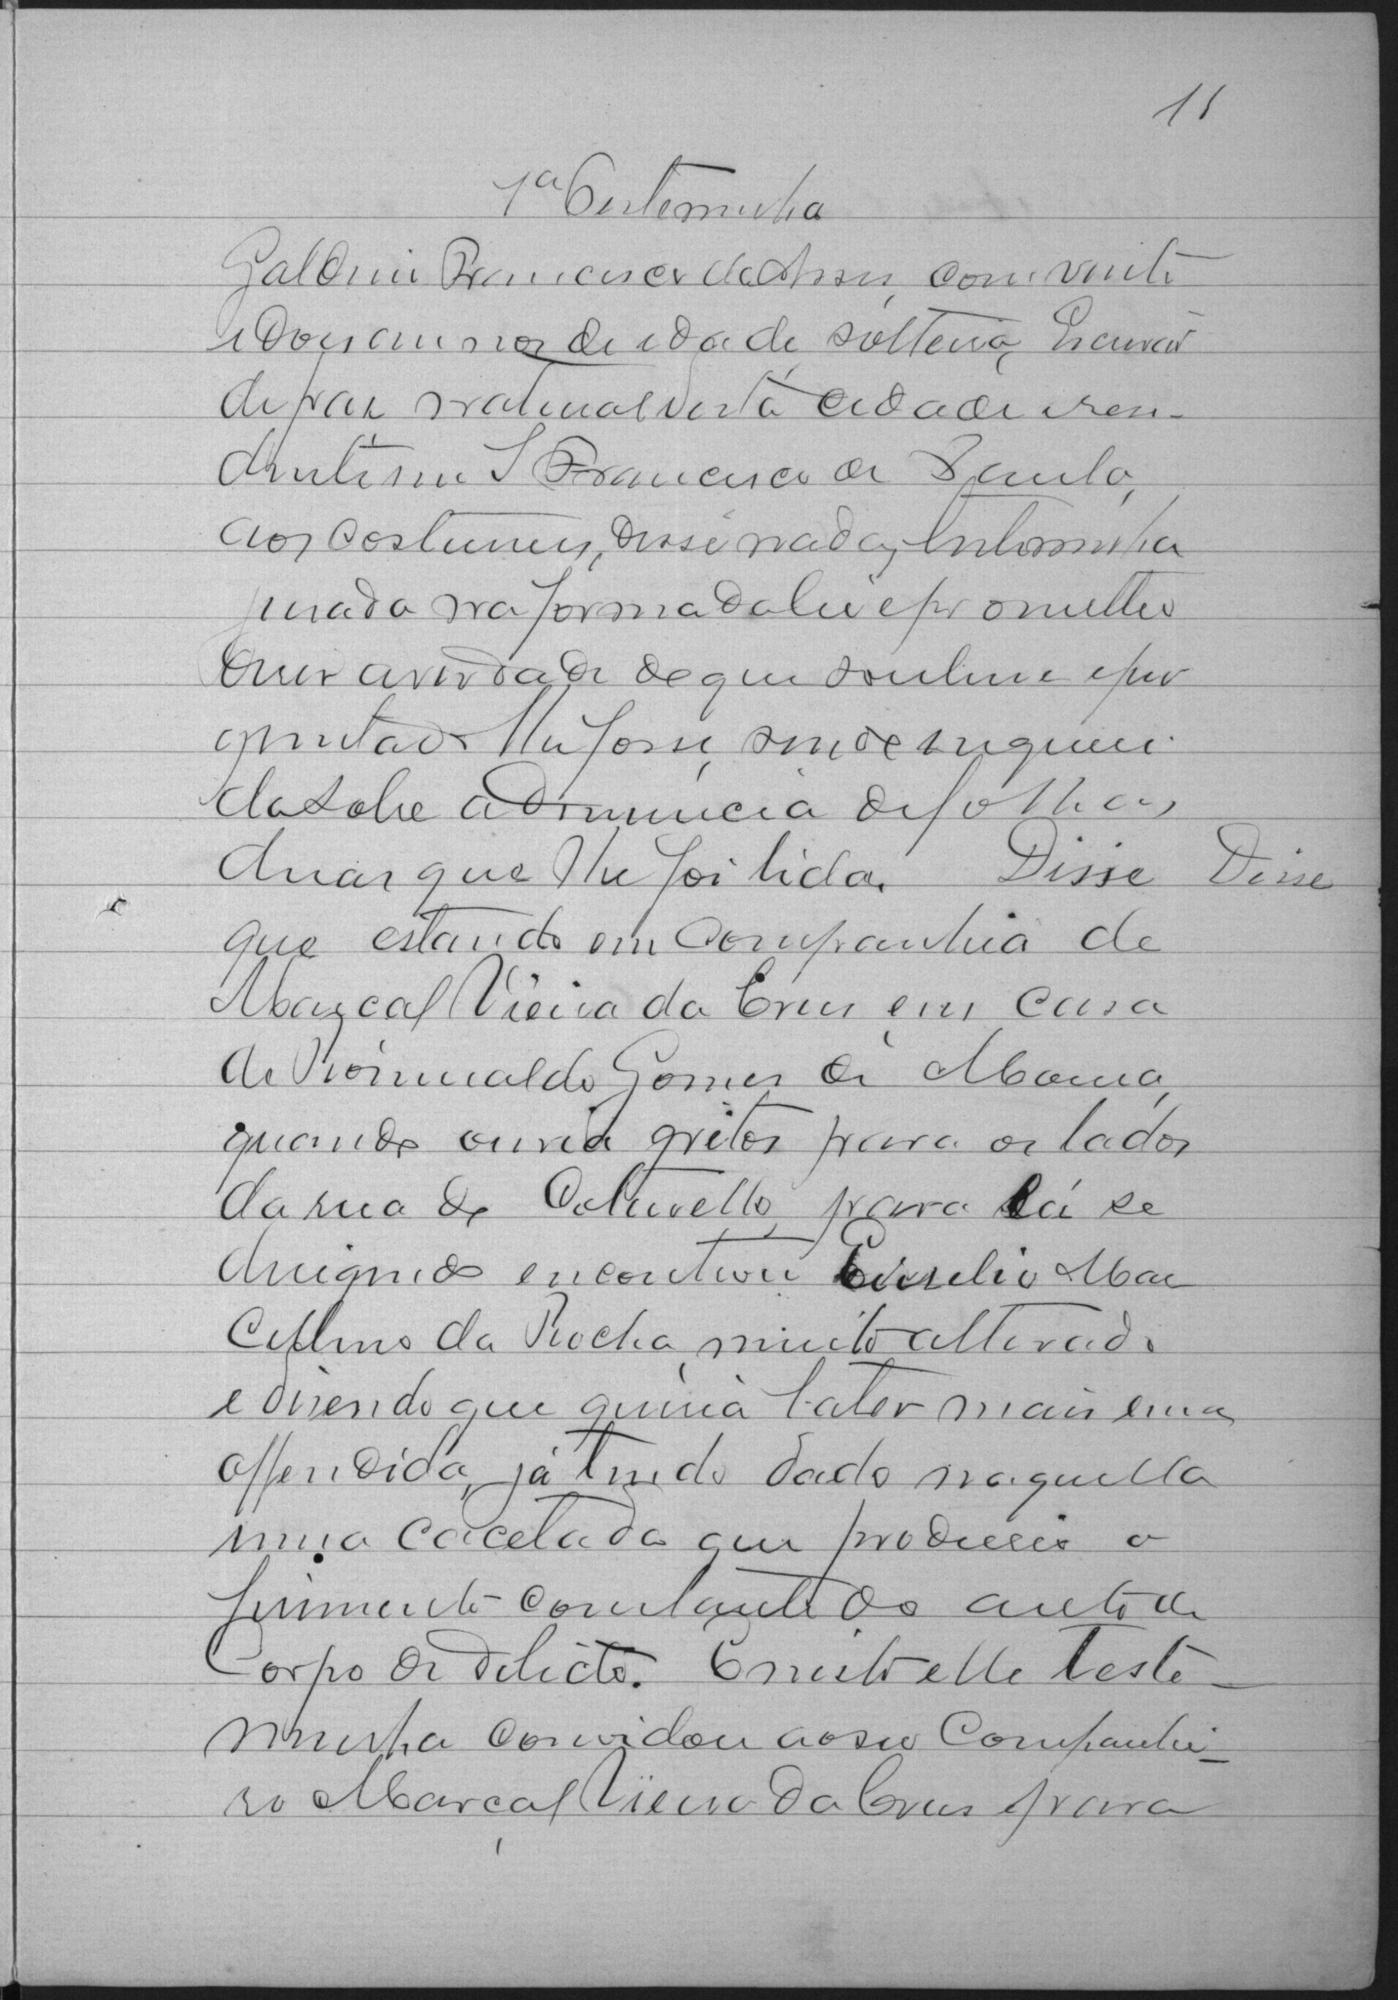 11
1a Testemunha
Galdino Francisco de Assis, com vinte
e dous annos de idade, solteiro, Escrivão
de paz natural desta cidade e resi-
dente em S Francisco de Paula,
aos costumes, disse nada, testemunha
jurada na forma da lei e prometteu
diser a verdade do que soubesse e per
guntado lhe fosse, sendo inqueri
do sobre a denuncia de folhas
duas que lhe foi lida. Disse Disse
que estando em Companhia de
Marçal Vieira da Crus em casa
de Romualdo Gomes de Moura,
quando ouvio gritos para os lados
da rua do Cotuvello, para lá se
dirigindo encontrou Eusebio Mar
cellino da Rocha, muito alterado
e disendo que queria bater mais em a
offendida, já tendo dado naquella
uma cacetada que produsio o
ferimento constante do auto de
Corpo de delicto. E nisto elle teste-
munha convidou ao seu Companhei-
ro Marçal Vieira da Crus para